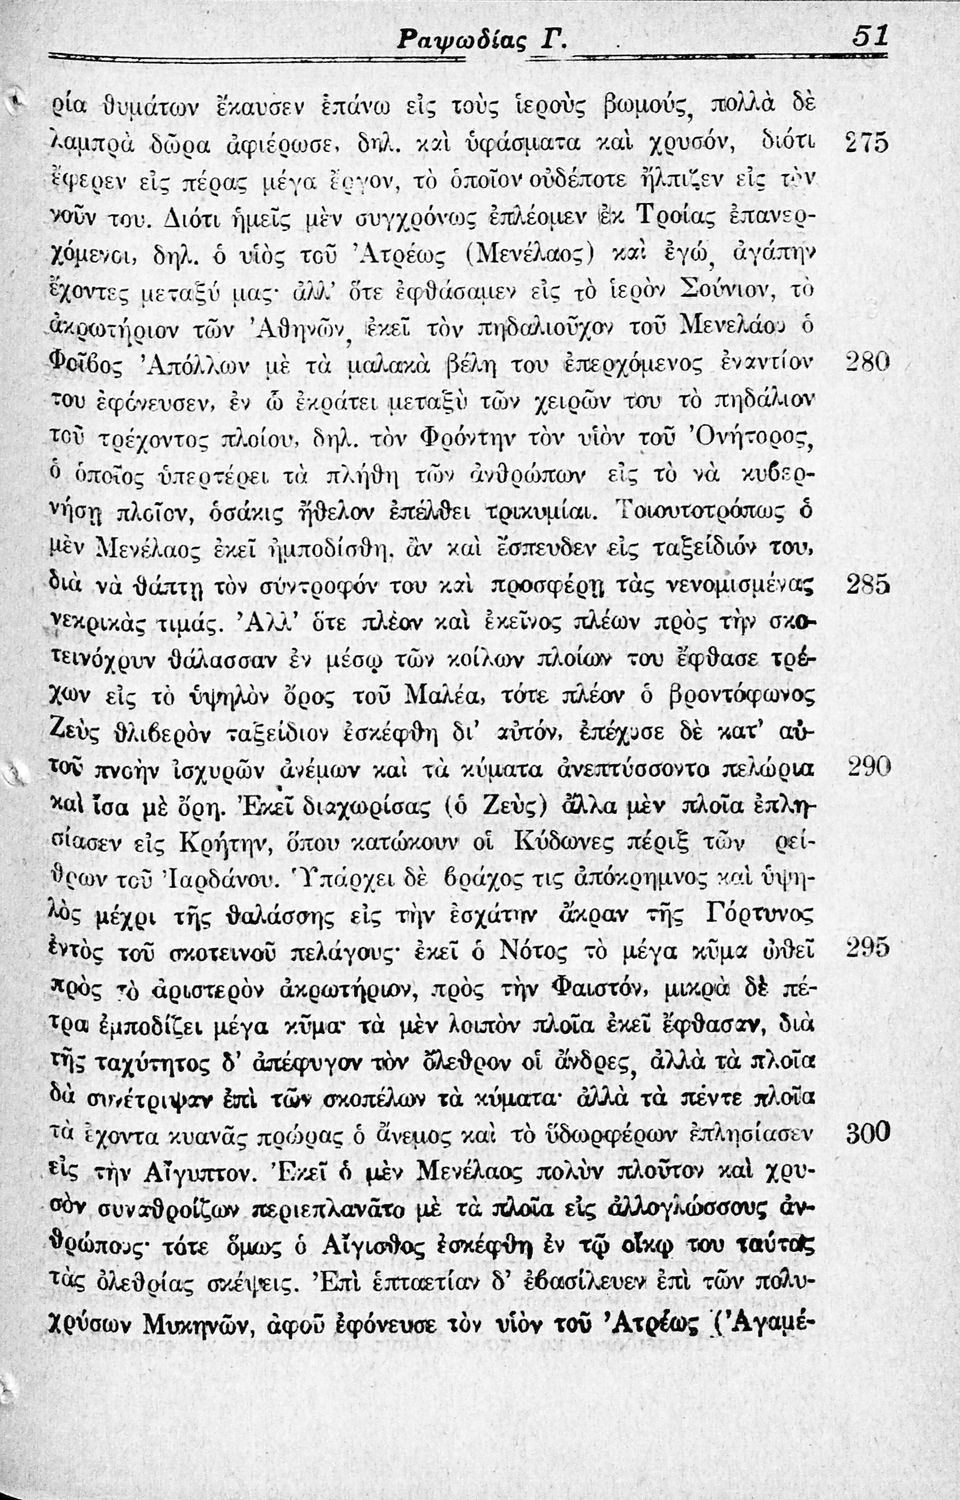 Ραψωδίας Γ. 51
ρία θυμάτων ἔκαυσεν ἐπάνω εἰς τοὺς ἱεροὺς βωμούς, πολλὰ δὲ
λαμπρὰ δῶρα ἀφιέρωσε, δηλ. καὶ ὑφάσματα καὶ χρυσόν, διότι 275
ἔφερεν εἰς πέρας μέγα ἔργον, τὸ ὁποῖον οὐδέποτε ἤλπιζεν εἰς τὸν
νοῦν του. Διότι ἡμεῖς μὲν συγχρόνως ἐπλέομεν ἐκ Τροίας ἐπανερ-
χόμενοι, δηλ. ὁ υἱὸς τοῦ Ἀτρέως (Μενέλαος) καὶ ἐγώ, ἀγάπην
ἔχοντες μεταξύ μας· ἀλλ’ ὅτε ἐφθάσαμεν εἰς τὸ ἱερὸν Σούνιον, τὸ
ἀκρωτήριον τῶν Ἀθηνῶν, ἐκεῖ τὸν πηδαλιοῦχον τοῦ Μενελάου ὁ
Φοῖβος Ἀπόλλων μὲ τὰ μαλακὰ βέλη του ἐπερχόμενος ἐναντίον 280
του ἐφόνευσεν, ἐν ᾧ ἐκράτει μεταξὺ τῶν χειρῶν του τὸ πηδάλιον
τοῦ τρέχοντος πλοίου, δηλ. τὸν Φρόντην τὸν υἱὸν τοῦ Ὀνήτορος,
ὁ ὁποῖος ὑπερτέρει τὰ πλήθη τῶν ἀνθρώπων εἰς τὸ νὰ κυβερ-
νήσῃ πλοῖον, ὁσάκις ἤθελον ἐπέλθει τρικυμίαι. Τοιουτοτρόπως ὁ
μὲν Μενέλαος ἐκεῖ ἠμποδίσθη, ἂν καὶ ἔσπευδεν εἰς ταξείδιόν του,
διὰ νὰ θάπτῃ τὸν σύντροφόν του καὶ προσφέρῃ τὰς νενομισμένας 285
νεκρικὰς τιμάς. Ἀλλ’ ὅτε πλέον καὶ ἐκεῖνος πλέων πρὸς τὴν σκο-
τεινόχρυν θάλασσαν ἐν μέσῳ τῶν κοίλων πλοίων του ἔφθασε τρέ-
χων εἰς τὸ ὑψηλὸν ὄρος τοῦ Μαλέα, τότε πλέον ὁ βροντόφωνος
Ζεὺς θλιβερὸν ταξείδιον ἐσκέφθη δι’ αὐτόν, ἐπέχυσε δὲ κατ’ αὐ-
τοῦ πνοὴν ἰσχυρῶν ἀνέμων καὶ τὰ κύματα ἀνεπτύσσοντο πελώρια 290
καὶ ἴσα μὲ ὄρη. Ἐκεῖ διαχωρίσας (ὁ Ζεὺς) ἄλλα μὲν πλοῖα ἐπλη-
σίασεν εἰς Κρήτην, ὅπου κατώκουν οἱ Κύδωνες πέριξ τῶν ρεί-
θρων τοῦ Ἰαρδάνου. Ὑπάρχει δὲ βράχος τις ἀπόκρημνος καὶ ὑψη-
λὸς μέχρι τῆς θαλάσσης εἰς τὴν ἐσχάτην ἄκραν τῆς Γόρτυνος
ἐντὸς τοῦ σκοτεινοῦ πελάγους· ἐκεῖ ὁ Νότος τὸ μέγα κῦμα ὠθεῖ 295
πρὸς τὸ ἀριστερὸν ἀκρωτήριον, πρὸς τὴν Φαιστόν, μικρὰ δὲ πέ-
τρα ἐμποδίζει μέγα κῦμα· τὰ μὲν λοιπὸν πλοῖα ἐκεῖ ἔφθασαν, διὰ
τῆς ταχύτητος δ’ ἀπέφυγον τὸν ὄλεθρον οἱ ἄνδρες, ἀλλὰ τὰ πλοῖα
δὰ συνέτριψαν ἐπὶ τῶν σκοπέλων τὰ κύματα· ἀλλὰ τὰ πέντε πλοῖα
τὰ ἔχοντα κυανᾶς πρώρας ὁ ἄνεμος καὶ τὸ ὕδωρφέρων ἐπλησίασεν 300
εἰς τὴν Αἴγυπτον. Ἐκεῖ ὁ μὲν Μενέλαος πολὺν πλοῦτον καὶ χρυ-
σὸν συναθροίζων περιεπλανᾶτο μὲ τὰ πλοῖα εἰς ἀλλογλώσσους ἀν-
θρώπους· τότε ὅμως ὁ Αἴγισθος ἐσκέφθη ἐν τῷ οἴκῳ του ταύτας
τὰς ὀλεθρίας σκέψεις. Ἐπὶ ἑπταετίαν δ’ ἐβασίλευεν ἐπὶ τῶν πολυ-
χρύσων Μυκηνῶν, ἀφοῦ ἐφόνευσε τὸν υἱὸν τοῦ Ἀτρέως (Ἀγαμέ-